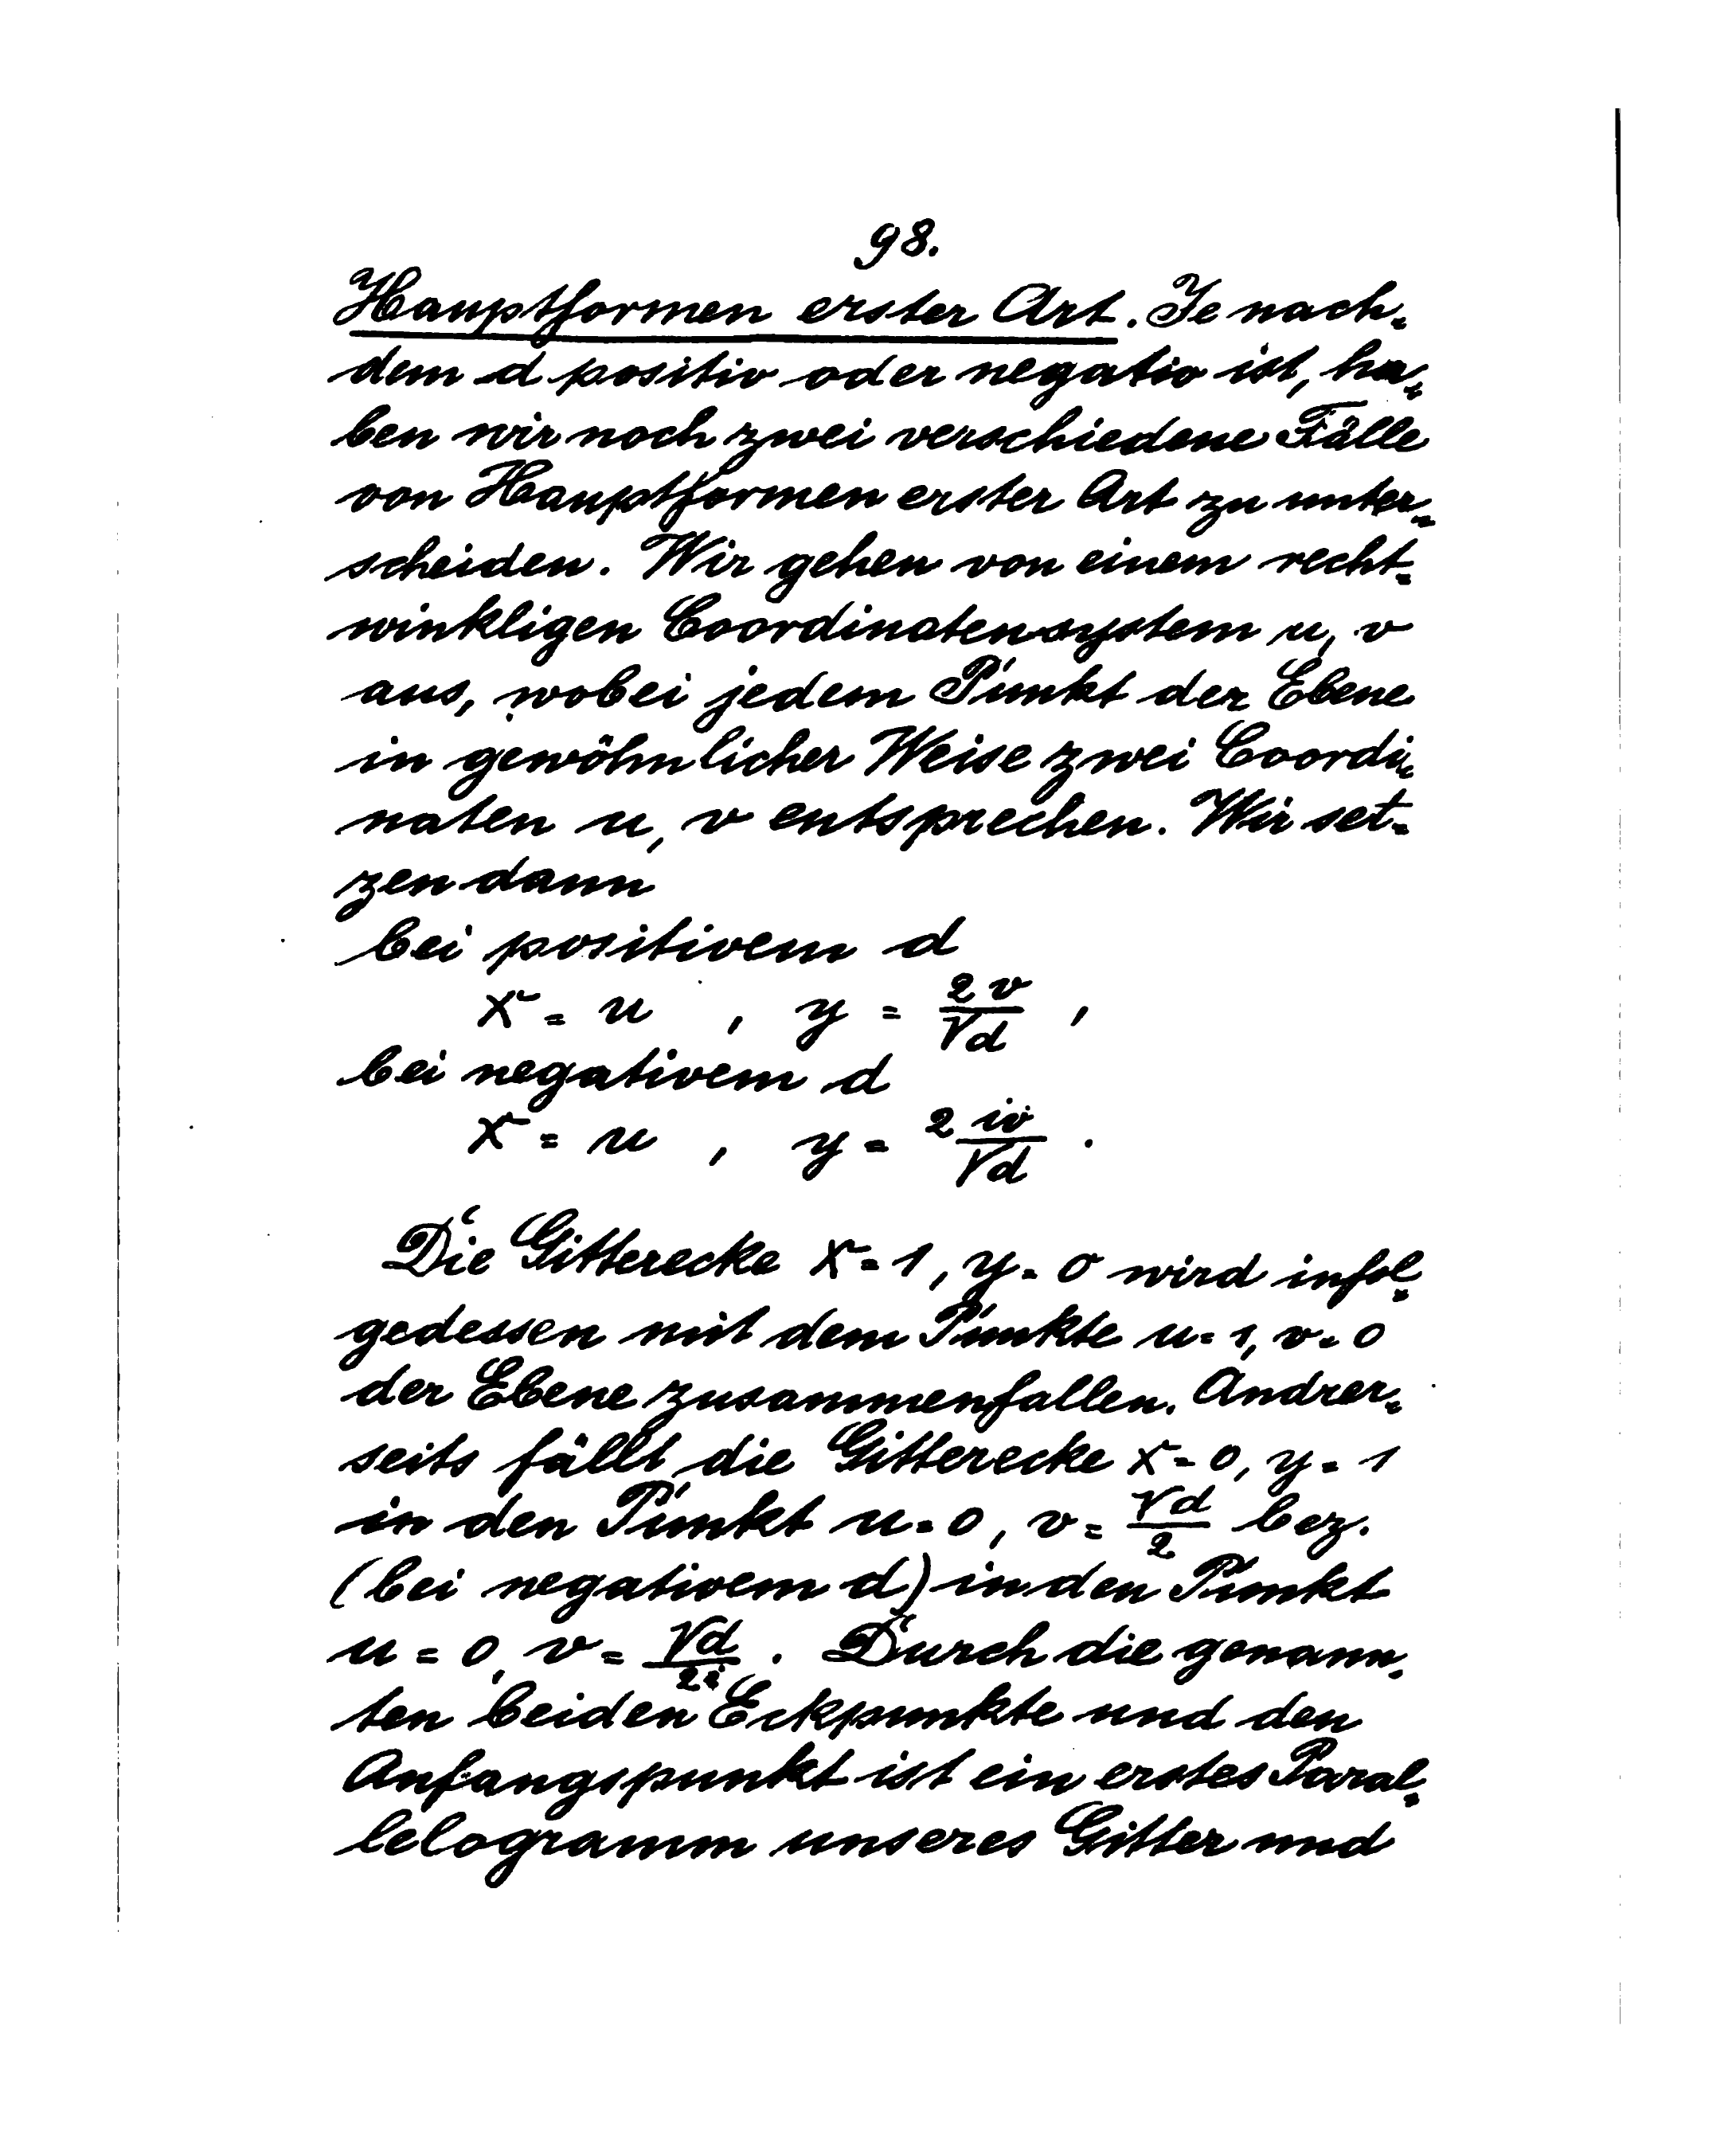 98.
Hauptformen erster Art. Je nach-
dem d positiv oder negativ ist, ha-
ben wir noch zwei verschiedene Fälle
von Hauptformen erster Art zu unter-
scheiden. Wir gehen von einem recht-
winkligen Coordinatensystem u, v
aus, wobei jedem Punkt der Ebene
in gewöhnlicher Weise zwei Coordi-
naten u, v entsprechen. Wir set-
zen dann
bei positivem d
x = u , y = 2v/√d ,
bei negativem d
x = u , y = 2iv/√d .
Die Gitterecke x = 1, y = 0 wird infol-
gedessen mit dem Punkte u = 1, v = 0
der Ebene zusammenfallen. Andrer-
seits fällt die Gitterecke x = 0, y = 1
in den Punkt u = 0, v = √d/2 bez.
(bei negativem d) in den Punkt
u = 0, v = √d/2i . Durch die genann-
ten beiden Eckpunkte und den
Anfangspunkt ist ein erstes Paral-
lelogramm unseres Gitter und